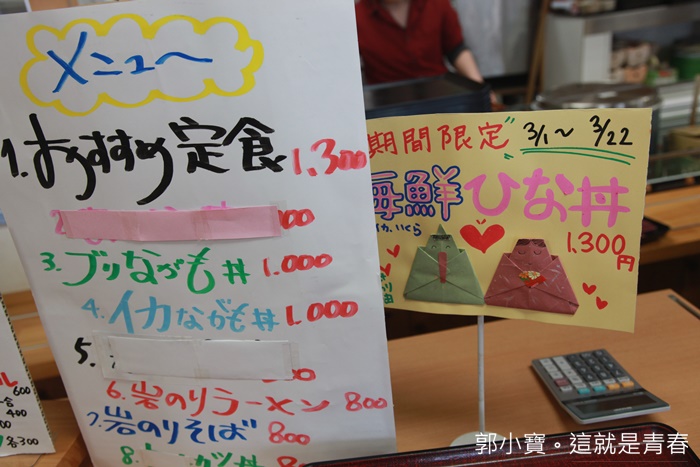 メニュー
1. おすすめ定食 1.300
2.
00
3. ブリながも丼 1.000
4. イカながも丼 1.000
5.
6. 岩のりラーメン 800
7. 岩のりそば 800
8. カツ丼
期間限定 3/1〜3/22
海鮮ひな丼
イカ、いくら
1,300円
600
400
各300
郭小寶。這就是青春